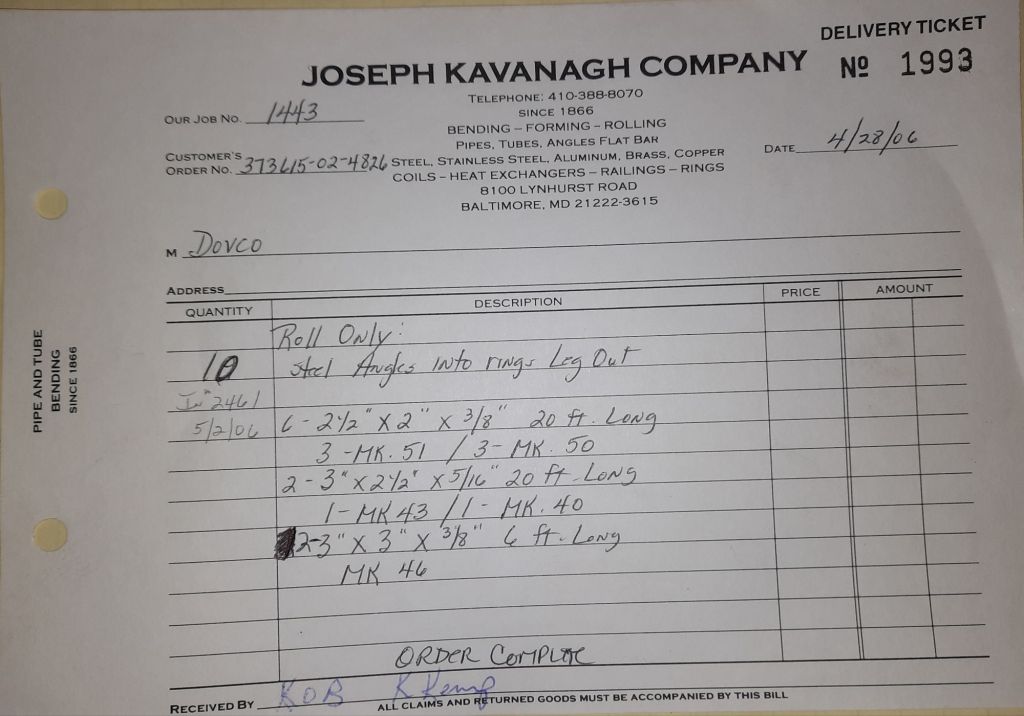 DELIVERY TICKET
JOSEPH KAVANAGH COMPANY Nº 1993
TELEPHONE: 410-388-8070
SINCE 1866
BENDING – FORMING – ROLLING
PIPES, TUBES, ANGLES FLAT BAR
STEEL, STAINLESS STEEL, ALUMINUM, BRASS, COPPER
COILS – HEAT EXCHANGERS – RAILINGS – RINGS
8100 LYNHURST ROAD
BALTIMORE, MD 21222-3615
OUR JOB NO. 1443
CUSTOMER'S
ORDER NO. 373615-02-4826
DATE 4/28/06
M Dovco
ADDRESS
QUANTITY DESCRIPTION PRICE AMOUNT
Roll Only:
10 Steel Angles into rings Leg Out
In# 2461
5/2/06 6 - 2 1/2" X 2" X 3/8" 20 ft. Long
3 - MK. 51 / 3 - MK. 50
2 - 3" X 2 1/2" X 5/16" 20 ft. Long
1 - MK 43 / 1 - MK. 40
2-3" X 3" X 3/8" 6 ft. Long
MK 46
ORDER COMPLETE
RECEIVED BY ROB K Kemp
ALL CLAIMS AND RETURNED GOODS MUST BE ACCOMPANIED BY THIS BILL
PIPE AND TUBE
BENDING
SINCE 1866